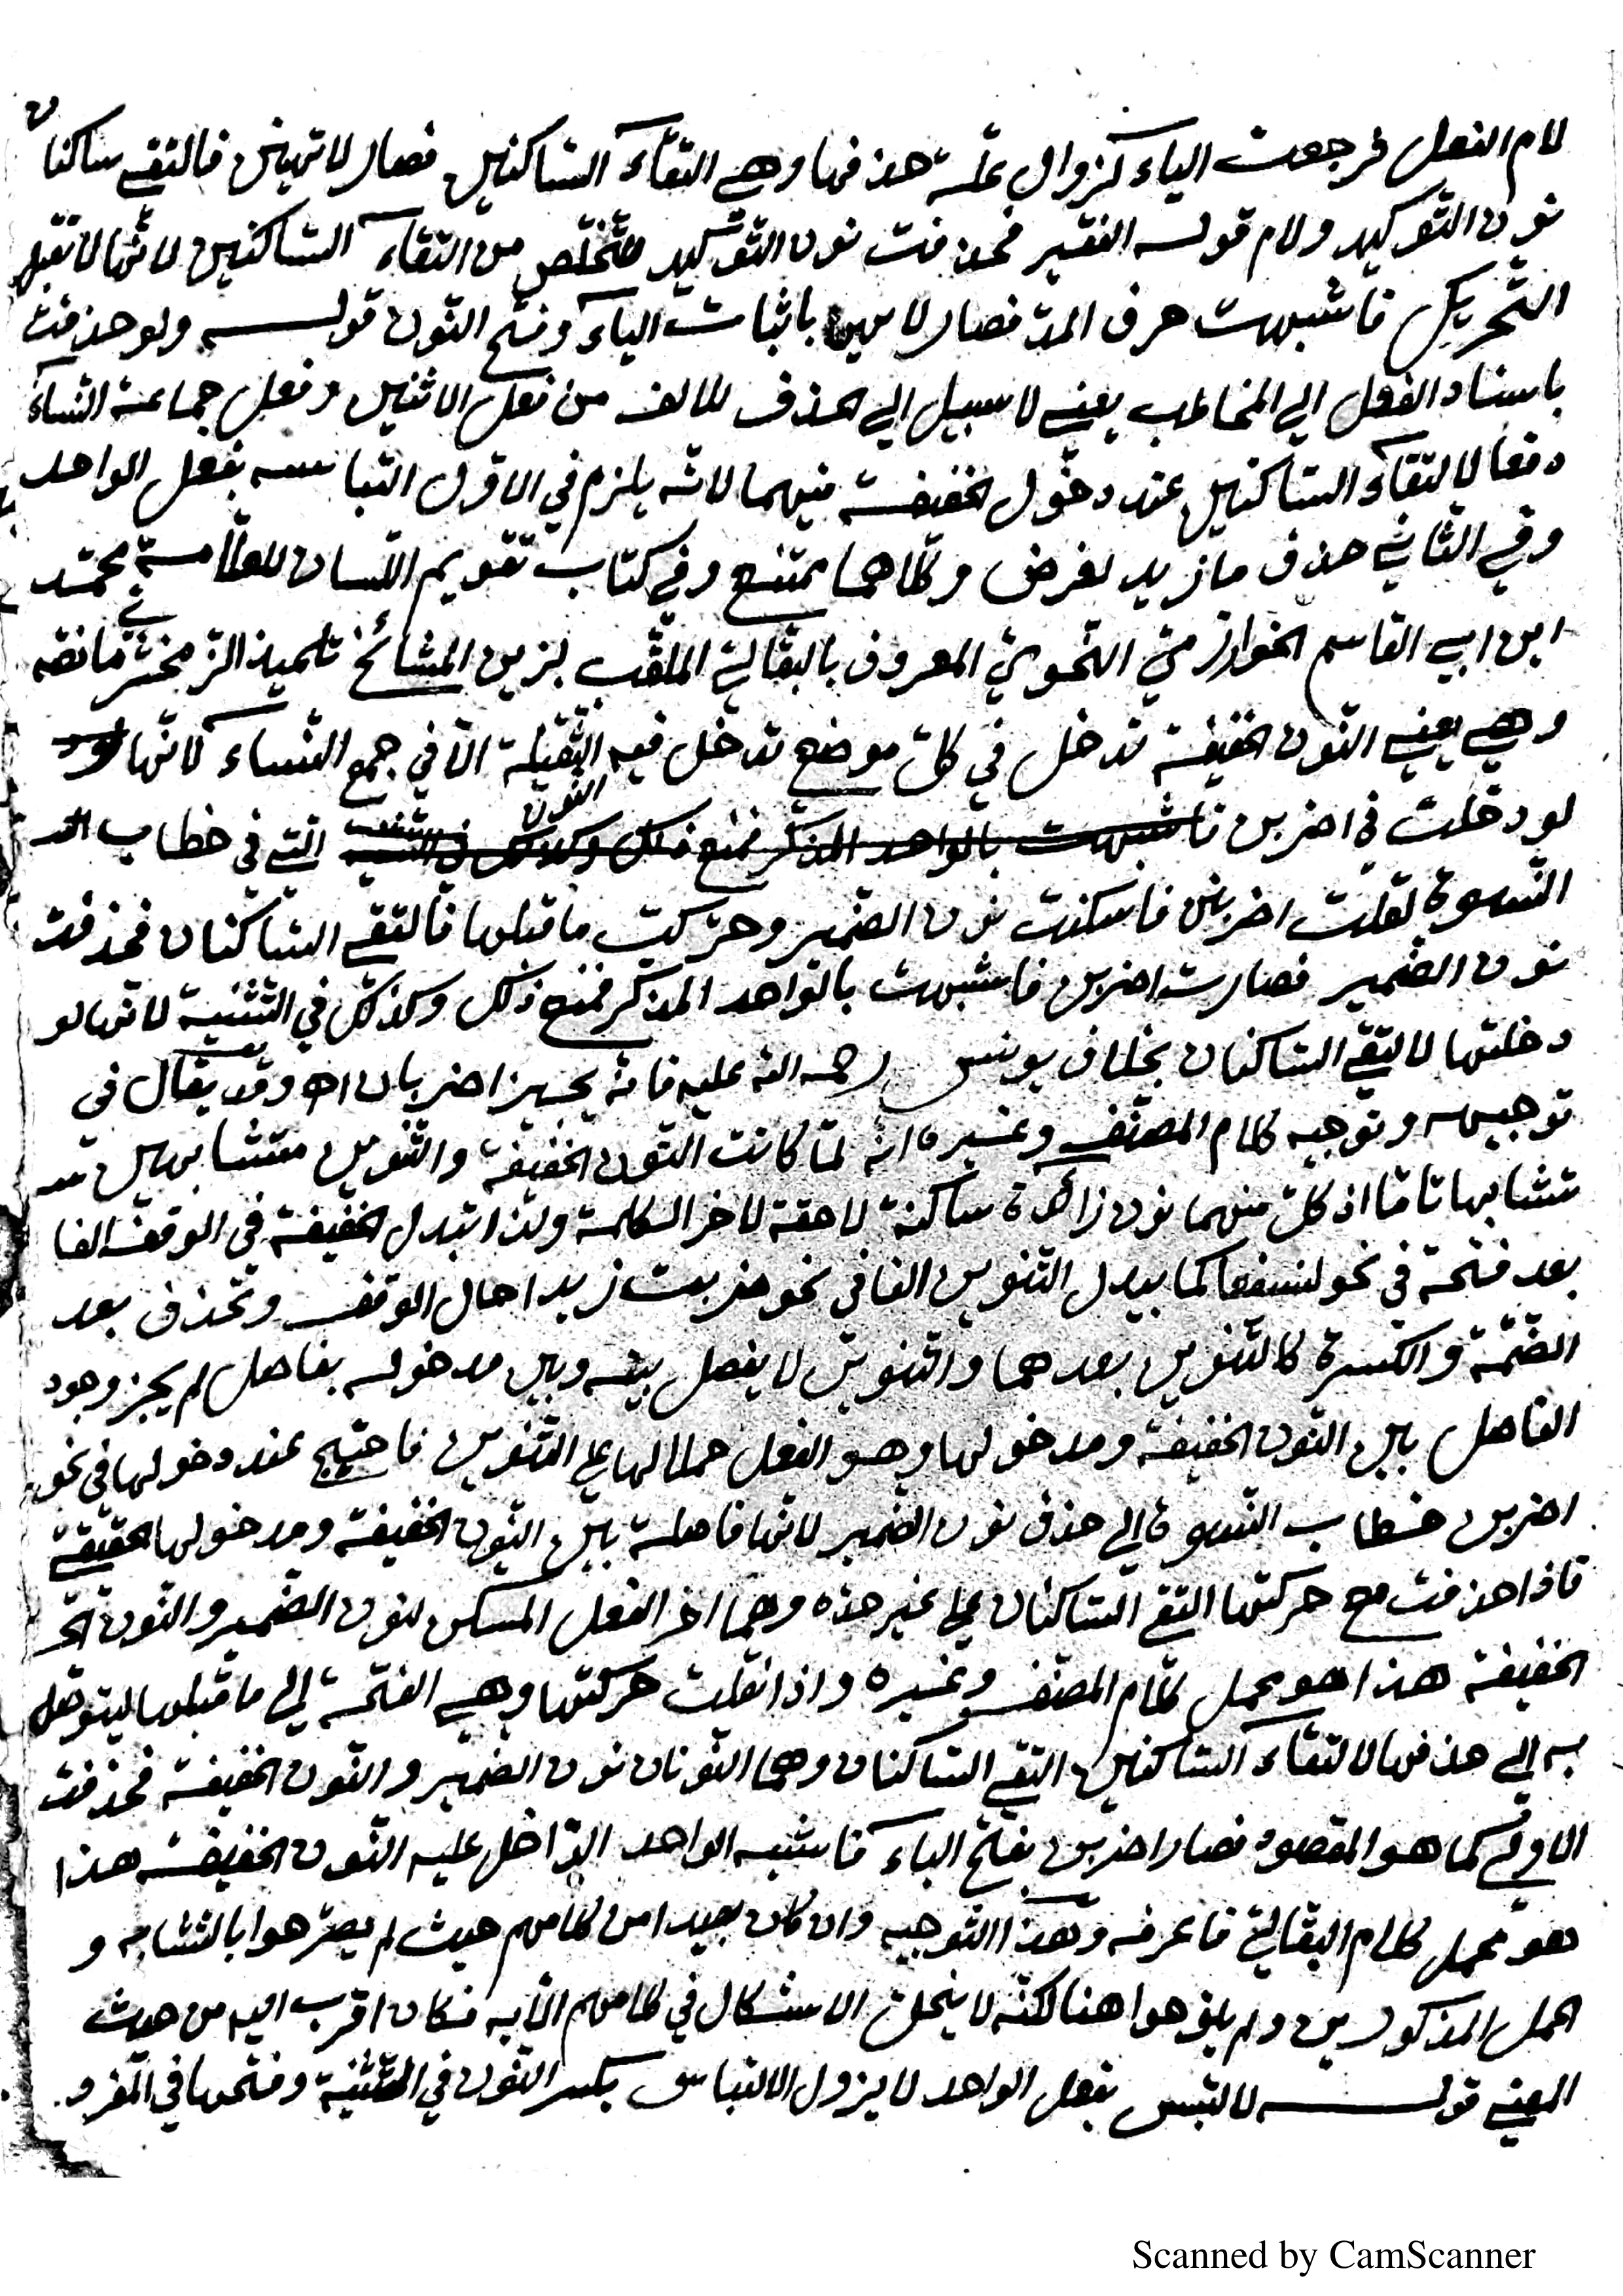 لام الفعل فرجعت الياء لزوال علة حذفها وهي التقاء الساكنين فصار لا تهينن فالتقى ساكنان
نون التوكيد ولام قوله الفقير فحذفت نون التوكيد للتخلص من التقاء الساكنين لانها لا تقبل
التحريك فاشبهت حرف المد فصار لا تهين باثبات الياء وفتح النون قوله ولو حذفت
باسناد الفعل الى المخاطب يعني لا سبيل الى حذف للالف من فعل الاثنين وفعل جماعة النساء
دفعا لالتقاء الساكنين عند دخول الخفيفة فيهما لانه يلزم في الاول التباسه بفعل الواحد
وفي الثاني حذف ما زيد لغرض وكلاهما ممتنع وفي كتاب تقويم اللسان للعلامة محمد
ابن ابي القاسم الخوارزمي النحوي المعروف بالبقالي الملقب بزين المشائخ تلميذ الزمخشري ما نصه
وهي يعني النون الخفيفة تدخل في كل موضع تدخل فيه الثقيلة الا في جمع النساء لانها
لو دخلت في اضربن النون التي في خطاب
النسوة لقلت اضربنن فاسكنت نون الضمير وحركت ما قبلها فالتقى الساكنان فحذفت
نون الضمير فصارت اضربن فاشبهت بالواحد المذكر فمنع ذلك وكذلك في التثنية لانها لو
دخلتها لالتقى الساكنان بخلاف يونس رحمه الله عليه فانه يجيز اضربان اه وقد يقال في
توجيهه وتوجيه كلام المصنف وغيره انه لما كانت النون الخفيفة والتنوين متشابهين
تشابها تاما اذ كل منهما نون زائدة ساكنة لاحقة لاخر الكلمة ولذا تبدل الخفيفة في الوقف الفا
بعد فتحة في نحو لنسفعا كما يبدل التنوين الفا في نحو ضربت زيدا حال الوقف وتحذف بعد
الضمة والكسرة كالتنوين بعدهما والتنوين لا يفصل بينه وبين مدخوله بفاصل لم يجز وجود
الفاصل بين النون الخفيفة ومدخولها وهو الفعل حملا لها على التنوين فاحتيج عند دخولها في نحو
اضربن خطاب النسوة الى حذف نون الضمير لانها فاصلة بين النون الخفيفة ومدخولها الحقيقة
فاذا حذفت مع حركتها التقى الساكنان على غير حده وهما اخر الفعل المسكن لنون الضمير والنون
الخفيفة هذا هو محمل كلام المصنف وغيره واذا نقلت حركتها وهي الفتحة الى ما قبلها ليتوصل
به الى حذفها لالتقاء الساكنين التقى الساكنان وهما النونان نون الضمير والنون الخفيفة فحذفت
الاولى كما هو المقصود فصار اضربن بفتح الباء فاشبه الواحد الداخل عليه النون الخفيفة هذا
هو محمل كلام البقالي فاعرفه وهذا التوجيه وان كان بعيدا من كلامهم حيث لم يصرحوا بالتشابه و
الحمل المذكورين ولم يلوحوا هنا لكنه لا ينحل الاشكال في كلامهم الا به فكان اقرب اليه من حيث
المعنى قوله لالتبس بفعل الواحد لا يزول الالتباس بكسر النون في التثنية وفتحها في المفرد.
Scanned by CamScanner